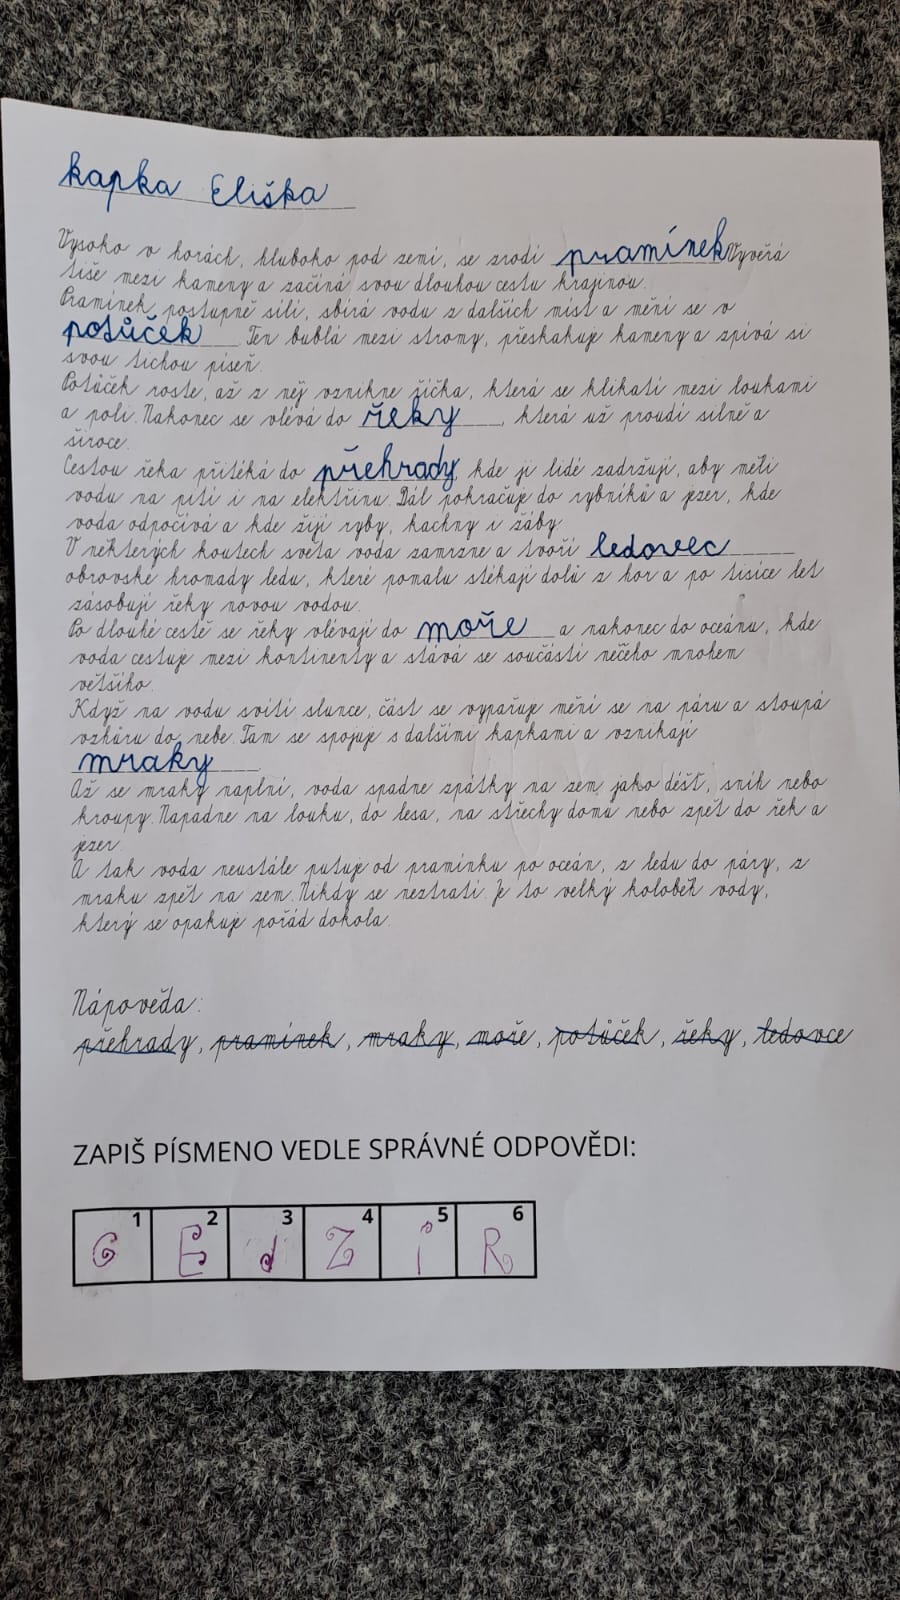 kapka Eliška
Vysoko v horách, hluboko pod zemí, se zrodí pramínek Vyvěrá
tiše mezi kameny a začíná svou dlouhou cestu krajinou.
Pramínek postupně sílí, sbírá vodu z dalších míst a mění se v
potůček Ten bublá mezi stromy, přeskakuje kameny a zpívá si
svou tichou píseň.
Potůček roste, až z něj vznikne říčka, která se klikatí mezi loukami
a poli. Nakonec se vlévá do řeky, která už proudí silně a
široce.
Cestou řeka přitéká do přehrady, kde ji lidé zadržují, aby měli
vodu na pití i na elektřinu. Dál pokračuje do rybníků a jezer, kde
voda odpočívá a kde žijí ryby, kachny i žáby
V některých koutech světa voda zamrzne a tvoří ledovec
obrovské hromady ledu, které pomalu stékají dolů z hor a po tisíce let
zásobují řeky novou vodou.
Po dlouhé cestě se řeky vlévají do moře a nakonec do oceánu, kde
voda cestuje mezi kontinenty a stává se součástí něčeho mnohem
většího.
Když na vodu svítí slunce, část se vypařuje mění se na páru a stoupá
vzhůru do nebe. Tam se spojuje s dalšími kapkami a vznikají
mraky.
Až se mraky naplní, voda spadne zpátky na zem jako déšť, sníh nebo
kroupy. Napadne na louku, do lesa, na střechy domů nebo zpět do řek a
jezer.
A tak voda neustále putuje od pramínku po oceán, z ledu do páry, z
mraku zpět na zem. Nikdy se neztratí. Je to velký koloběh vody,
který se opakuje pořád dokola.
Nápověda:
přehrady, pramínek, mraky, moře, potůček, řeky, ledovce
ZAPIŠ PÍSMENO VEDLE SPRÁVNÉ ODPOVĚDI:
1 2 3 4 5 6
G E d Z í R